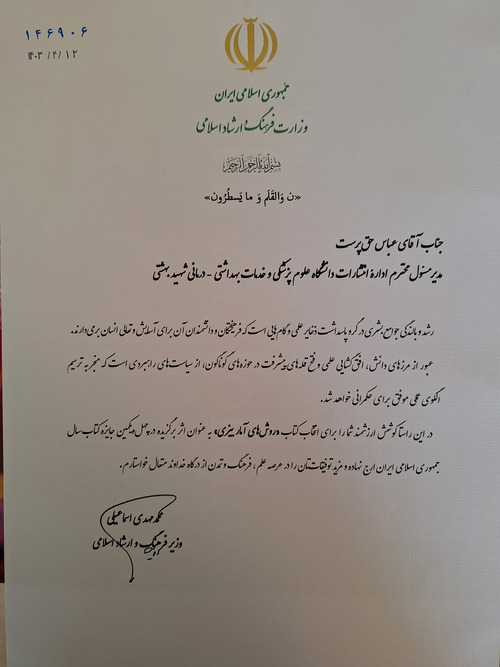 ۱۴۶۹۰۶
۱۴۰۳/۴/۱۲
جمهوری اسلامی ایران
وزارت فرهنگ و ارشاد اسلامی
بسم الله الرحمن الرحیم
«ن وَالقَلَم وَ ما یَسطُرُون»
جناب آقای عباس حق پرست
مدیر مسئول محترم ادارۀ انتشارات دانشگاه علوم پزشکی و خدمات بهداشتی - درمانی شهید بهشتی
رشد و بالندگی جوامع بشری در گرو پاسداشت ذخایر علمی و گام هایی است که فرهیختگان و دانشمندان آن برای آسایش و تعالی انسان برمی دارند.
عبور از مرزهای دانش، افق گشایی علمی و فتح قله های پیشرفت در حوزه های گوناگون، از سیاست های راهبردی است که منجر به ترسیم
الگوی عملی موفق برای حکمرانی خواهد شد.
در این راستا کوشش ارزشمند شما را برای انتخاب کتاب «روش های آمار بیزی» به عنوان اثر برگزیده در چهل و یکمین جایزه کتاب سال
جمهوری اسلامی ایران ارج نهاده و مزید توفیقات تان را در عرصه علم، فرهنگ و تمدن از درگاه خداوند متعال خواستارم.
محمد مهدی اسماعیلی
وزیر فرهنگ و ارشاد اسلامی